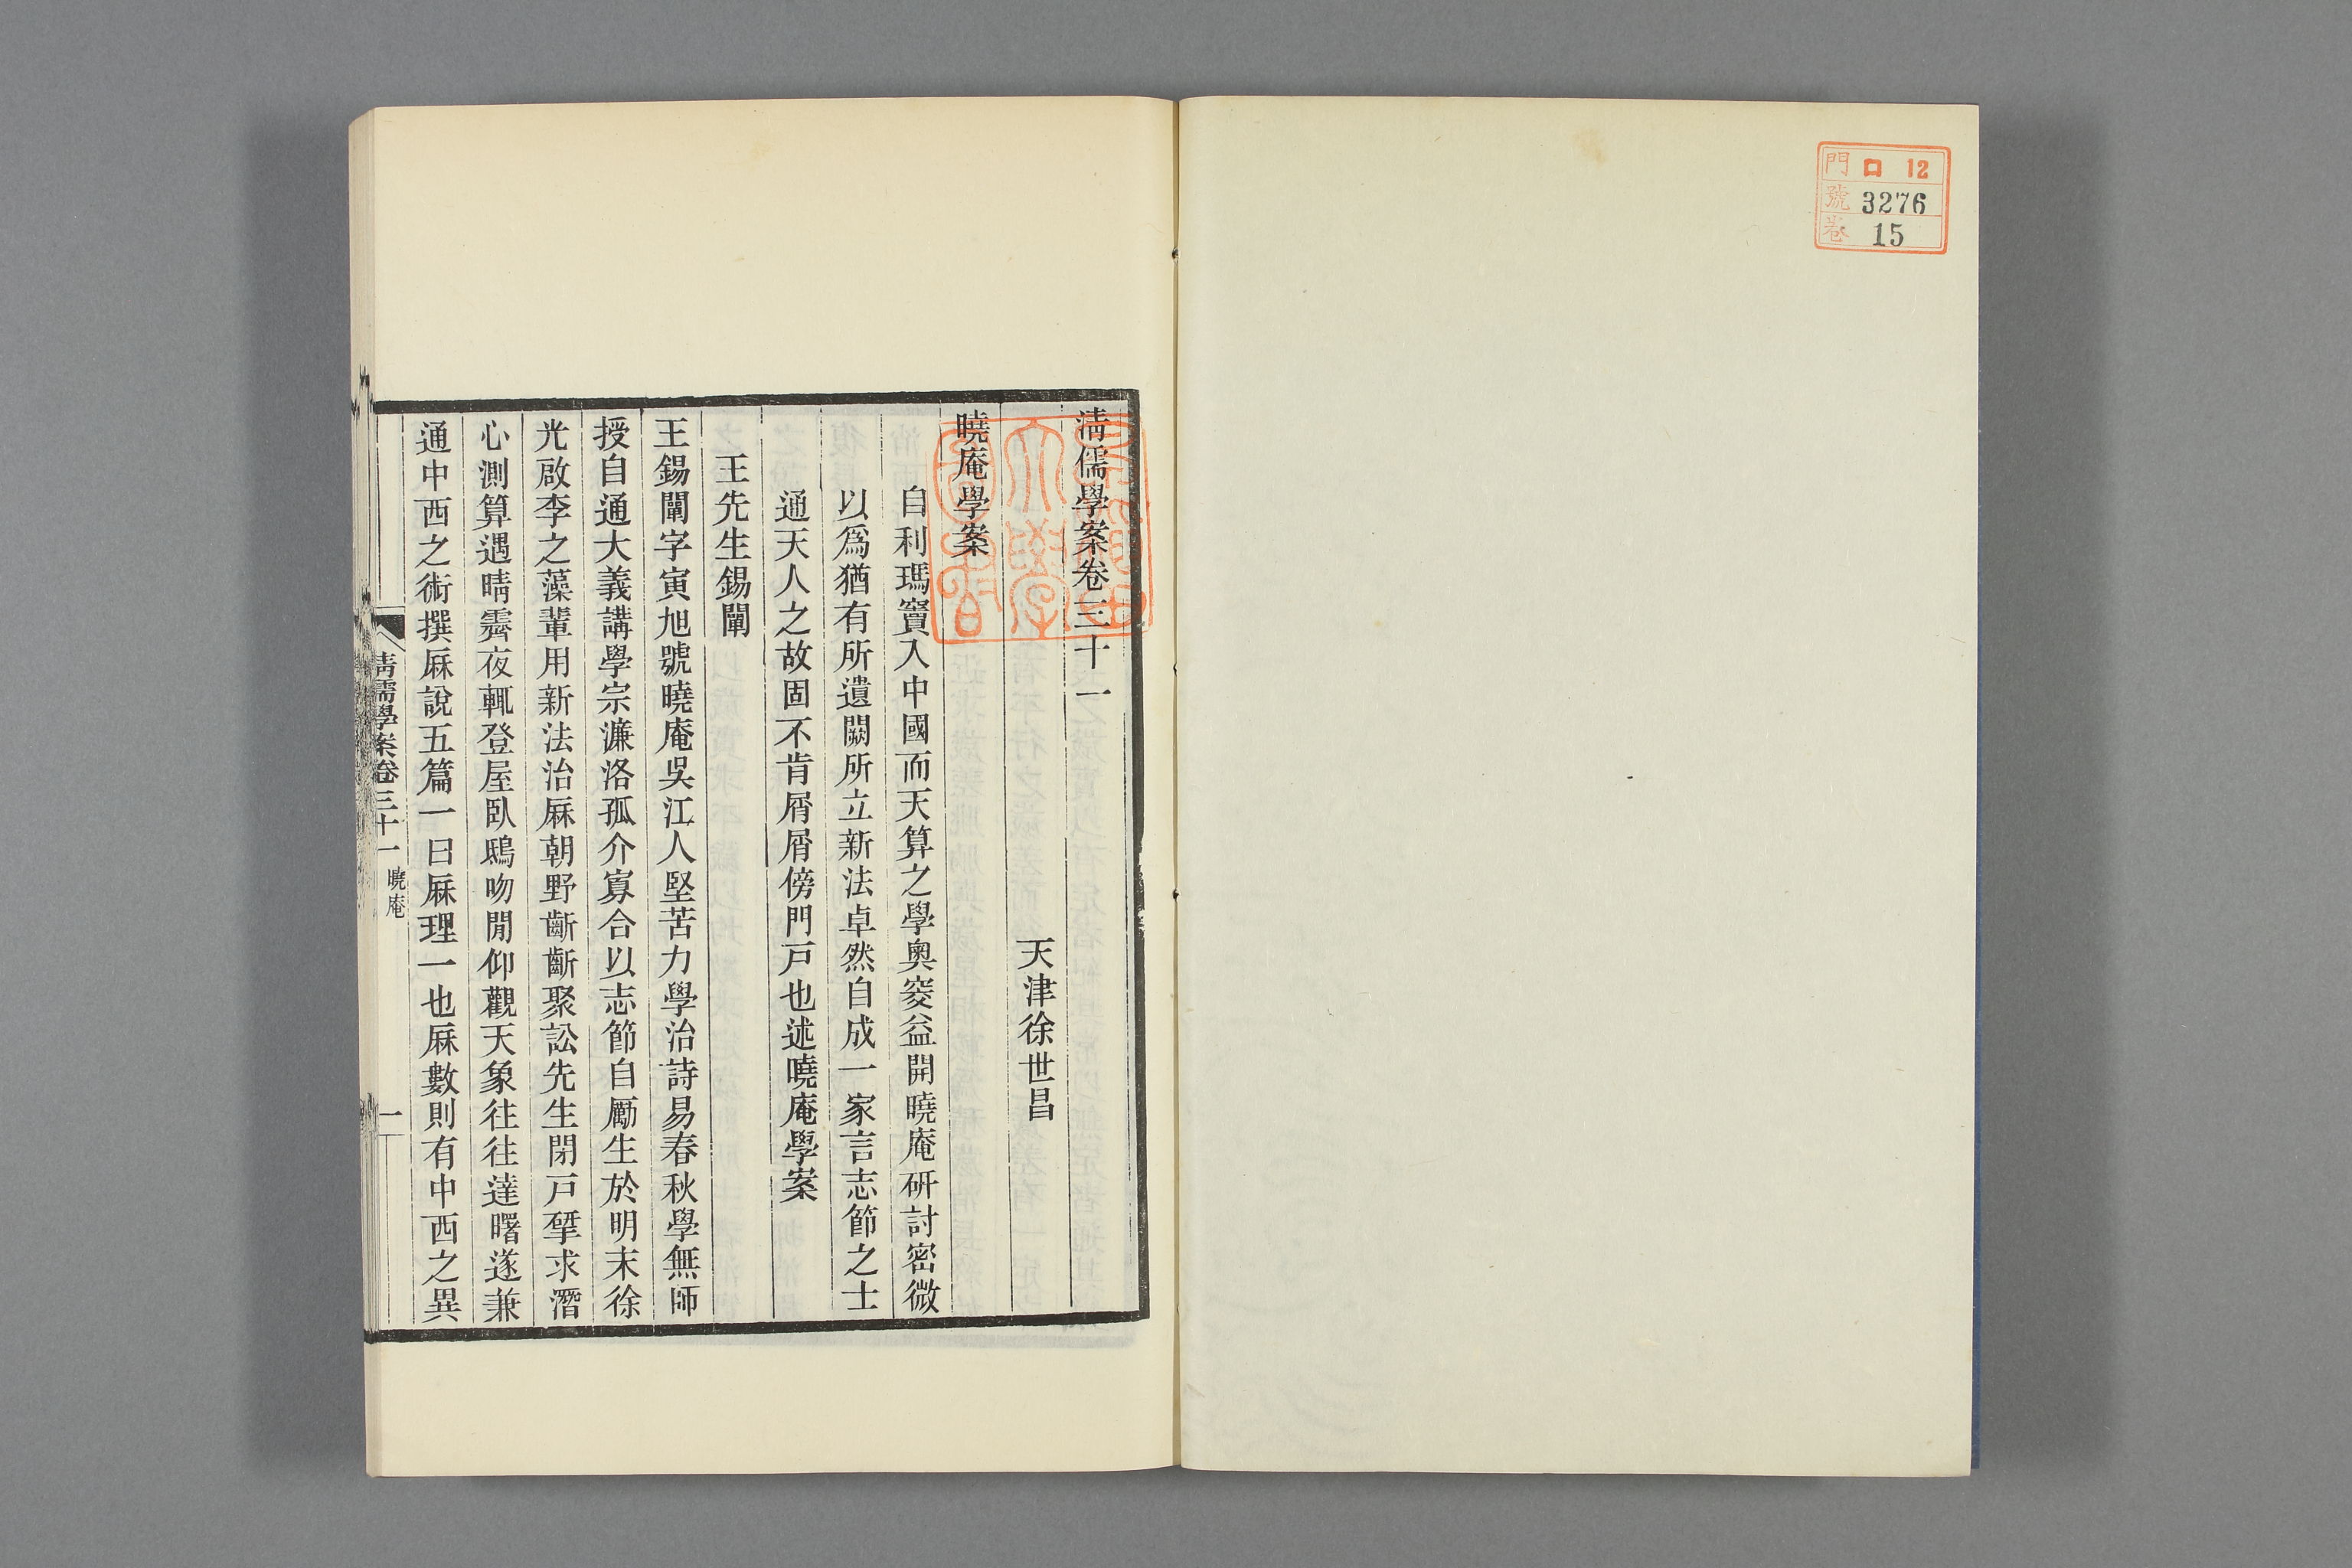 門 口 12
號 3276
卷 15
清儒學案卷三十一
天津徐世昌
曉庵學案
自利瑪竇入中國而天算之學奧窔益開曉庵研討密微
以爲猶有所遺闕所立新法卓然自成一家言志節之士
通天人之故固不肯屑屑傍門戸也述曉庵學案
王先生錫闡
王錫闡字寅旭號曉庵吳江人堅苦力學治詩易春秋學無師
授自通大義講學宗濂洛孤介寡合以志節自勵生於明末徐
光啟李之藻輩用新法治厤朝野齗齗聚訟先生閉戸揅求潛
心測算遇晴霽夜輒登屋臥鴟吻閒仰觀天象往往達曙遂兼
通中西之術撰厤說五篇一曰厤理一也厤數則有中西之異
清儒學案卷三十一 曉庵 一